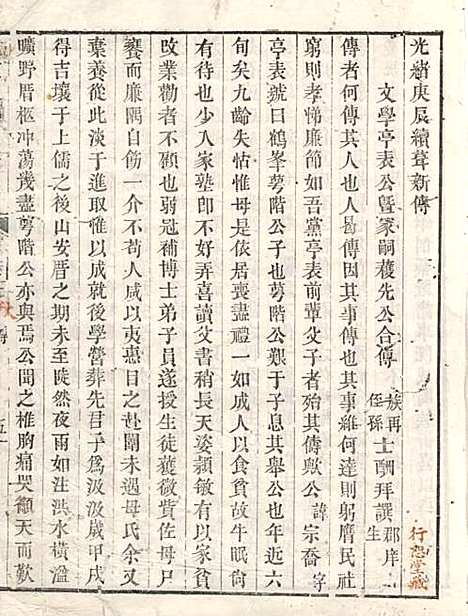 光緒庚辰續葺新傳
文學亭表公暨冢嗣穫先公合傳 族再姪孫士酬拜譔 郡庠生
傳者何傳其人也人曷傳因其事傳也其事維何達則躬膺民社
窮則孝悌廉節如吾黨亭表前輩父子其儔歟公諱宗喬字
亭表號曰鶴峯萼階公子也萼階公艱于子息其舉公也年近六
旬矣九齡失怙惟母是依居喪盡禮一如成人以食貧故牛眠尚
有待也少入家塾即不好弄喜讀父書稍長天姿穎敏有以貧以
改業勸者不顧也弱冠補博士弟子員遂授生徒藉微貲佐母尸
饔而廉隅自飭一介不苟人咸以夷惠目之赴闈未遇母氏余又
棄養從此淡于進取惟以成就後學營葬先君子為汲汲歲甲戌
得吉壤于上儒之後山安厝之期未至陡然夜雨如注洪水橫溢
曠野厝柩冲蕩幾盡萼階公亦與焉公聞之椎胸痛哭籲天而歎
行恕堂藏